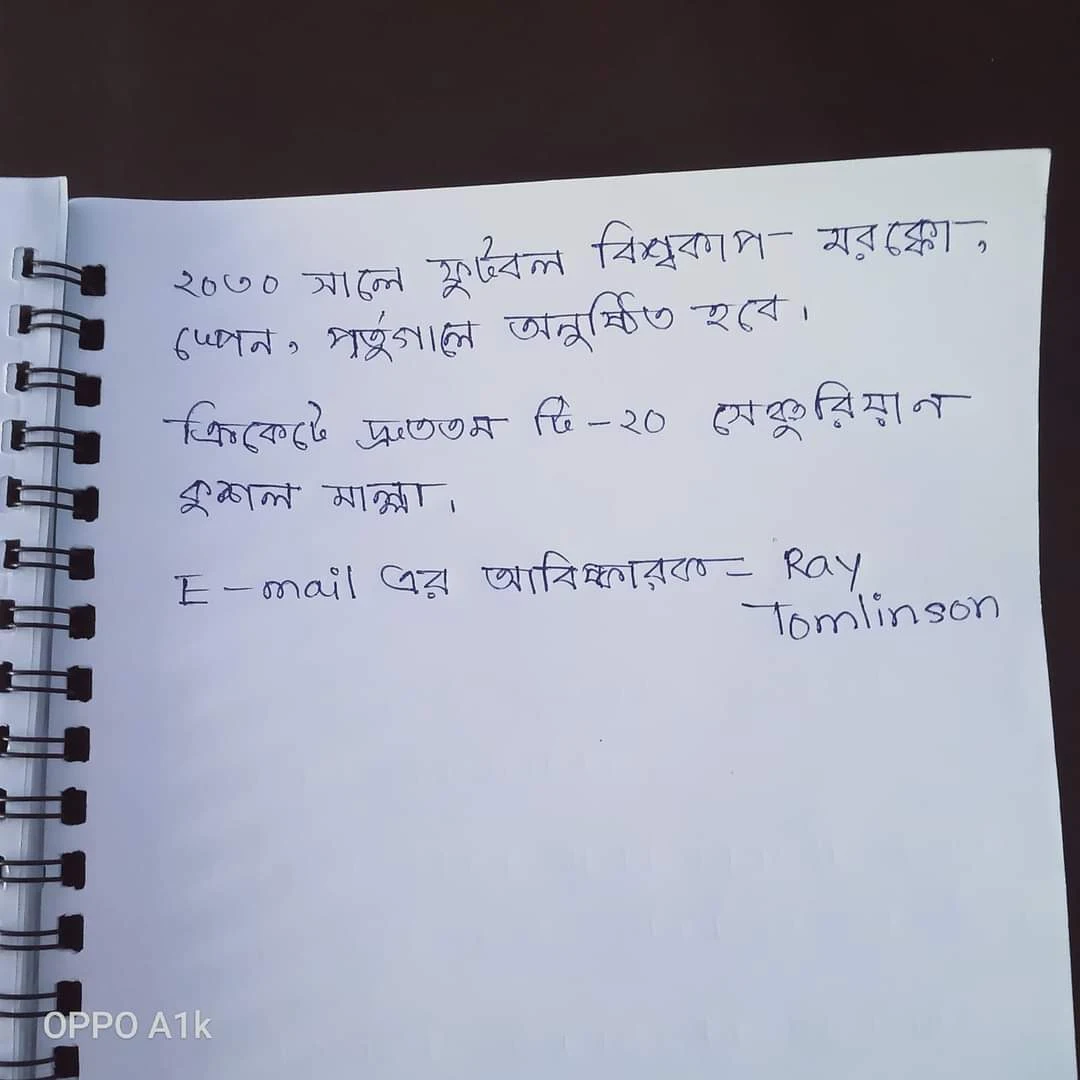 ২০৩০ সালে ফুটবল বিশ্বকাপ- মরক্কো,
স্পেন, পর্তুগালে অনুষ্ঠিত হবে।
ক্রিকেটে দ্রুততম টি-২০ সেঞ্চুরিয়ান
কুশল মাল্লা।
E-mail এর আবিষ্কারক- Ray
Tomlinson
OPPO A1k